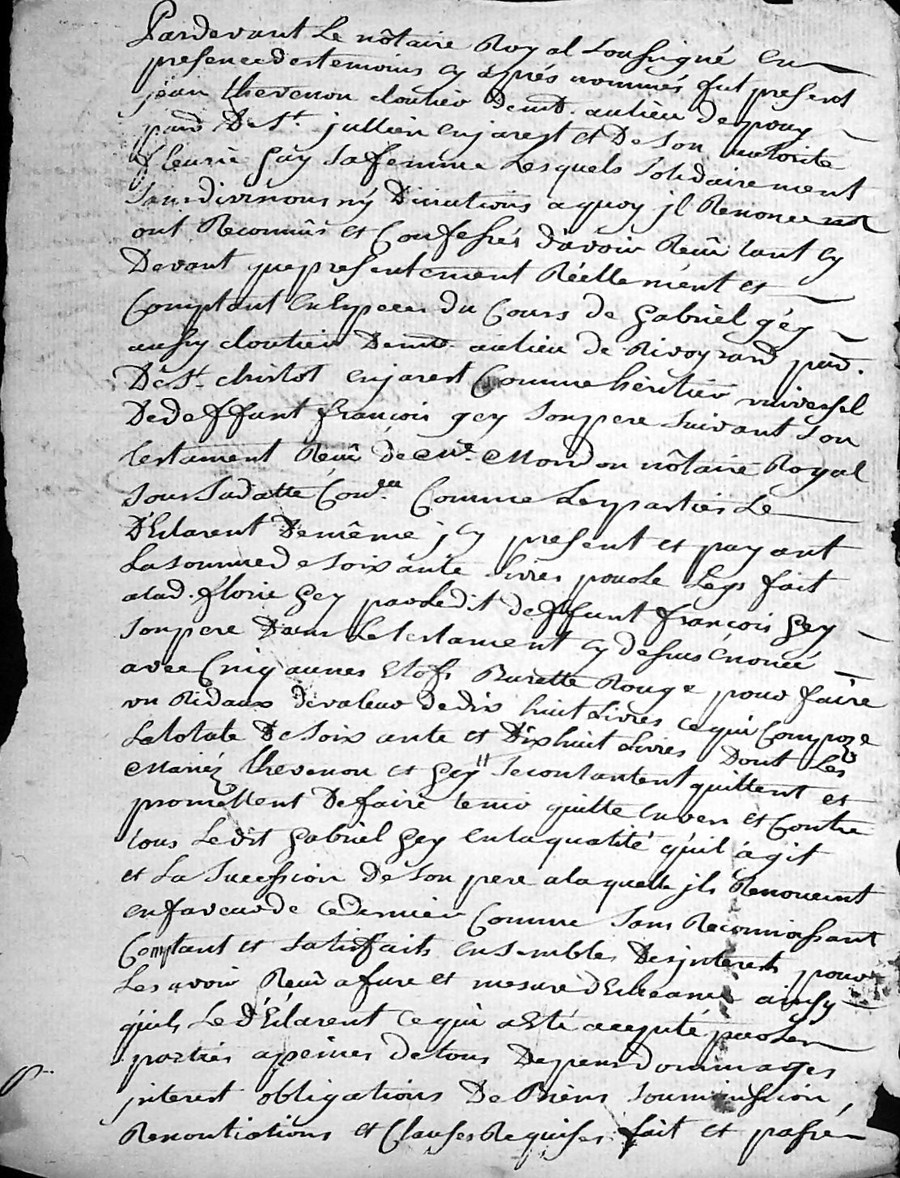 Pardevant Le nôtaire Royal Soussigné en
presence des temoins cy aprés nommés fut present
jean thevenon cloutier demt. au lieu de pouy
parr De St. jullien enjarest et De Son autorité
fleurie Gay Sa femme Lesquels Solidairement
Sans division ny Discutions a quoy jl Renoncent
ont Reconnûs et Confessés d'avoir Reçû tant cy
Devant que presentement Réellement et
Comptant en Especes du Cours de Gabriel géy
aussy cloutier Demt. au lieu de Rivoyrand parr.
De St. christot enjarest Comme héritier universel
De deffunt françois gey Son pere Suivant Son
testament Reçû de Me. Mondon nôtaire Royal
Sous Sa datte Con.lée Comme Les parties Le
Déclarent De même jcy present et payant
La Somme de Soixante Livres pour Le Legs fait
a lad. florie Gey par Ledit deffunt françois Gey
Son pere Dans Le testament cy dessus énoncé
avec Cinq aunes Etofs Burette Rouge pour faire
un Ridaux de valeur de dix huit Livres ce qui Compoze
La totale De Soixante et Dixhuit Livres Dont Les
Mariéz thevenon et Gey Se contantent quittent et
promettent De faire tenir quitte envers et Contre
tous Ledit Gabriel Gey en la qualité qu'il agit
et La Sucession de Son pere a laquelle jls Renoncent
en faveur de ce dernier Comme Sans Reconnoissant
Comptant et Satisfaits ensembles Des jnterests pour
Les avoir Reçû a fure et mesure d'Echeance ainsy
qu'ils Le Déclarent ce qui a Eté accepté par Les
parties a peines de tous Depens Dommages
jnterest obligations De Biens Soumission
Renontiations et Clauses Requises fait et passé